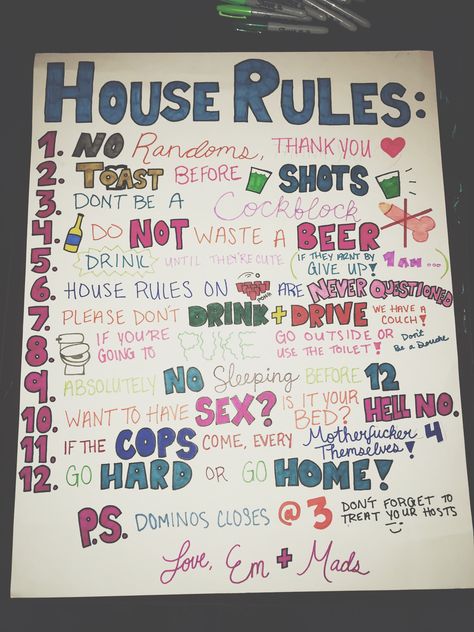 HOUSE RULES:
1. NO Randoms, THANK YOU
2. TOAST BEFORE SHOTS
3. DONT BE A Cockblock
4. DO NOT WASTE A BEER
5. DRINK UNTIL THEY'RE CUTE (IF THEY ARN'T BY 1AM... GIVE UP!)
6. HOUSE RULES ON PONG ARE NEVER QUESTIONED
7. PLEASE DON'T DRINK + DRIVE WE HAVE A COUCH!
8. IF YOU'RE GOING TO PUKE GO OUTSIDE OR USE THE TOILET! Don't Be a Douche
9. ABSOLUTELY NO Sleeping BEFORE 12
10. WANT TO HAVE SEX? IS IT YOUR BED? HELL NO.
11. IF THE COPS COME, EVERY Motherfucker 4 Themselves!
12. GO HARD OR GO HOME!
P.S. DOMINOS CLOSES @ 3 DON'T FORGET TO TREAT YOUR HOSTS
Love, Em + Mads